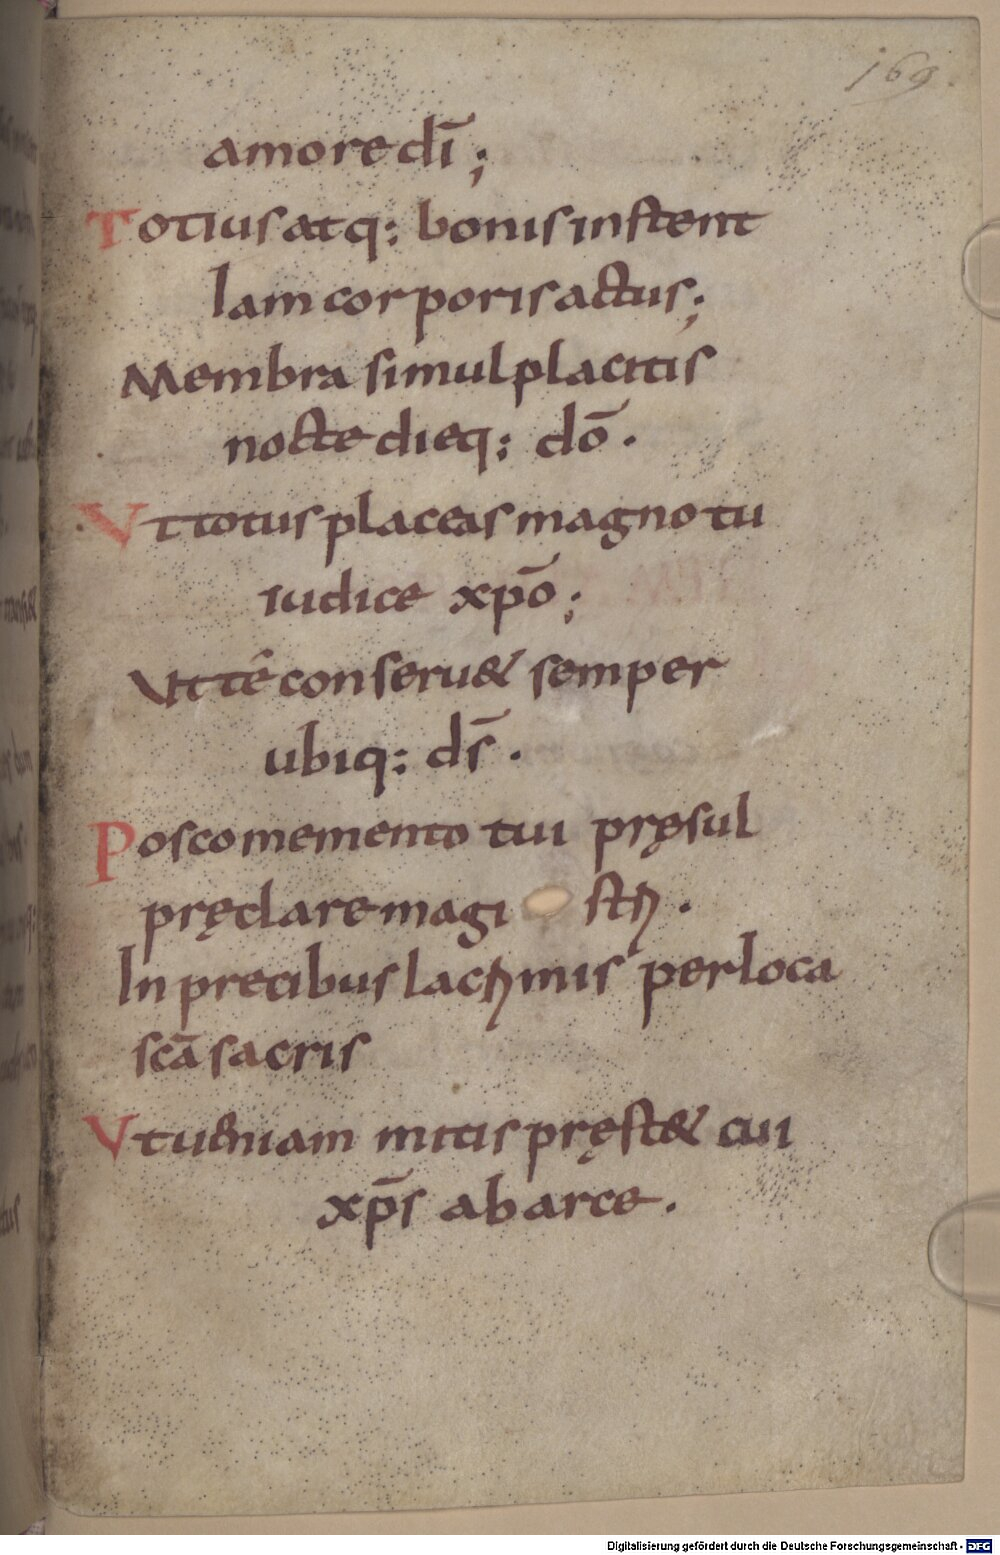 169
amore dī;
Totius atq: bonis instent
lam corporis actus;
Membra simul placitis
nocte dieq: dō.
Vt totus placeas magno tu
iudice xp̄o;
Ut tê conseru& semper
ubiq: ds̄.
Posco memento tui pręsul
pręclare magi str̄.
In precibus lacr̄mis per loca
scā sacris
Vt ueniam mitis pręst& cui
xp̄s ab arce.
Digitalisierung gefördert durch die Deutsche Forschungsgemeinschaft - DFG